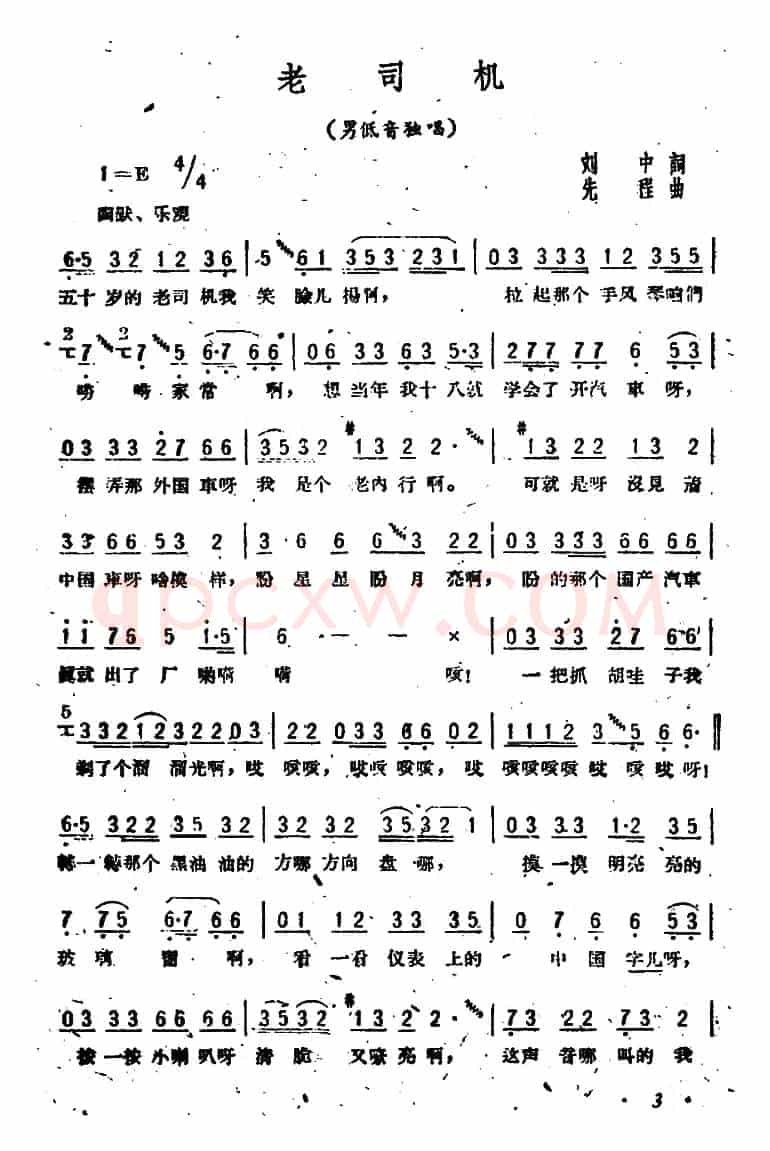 老司机
(男低音独唱)
1=E 4/4
刘中詞
先程曲
幽默、乐观
6·5 32 12 36 | 5 61 353 231 | 03 333 12 355 |
五十岁的老司机我笑臉儿揚啊, 拉起那个手风琴咱們
7 7 5 6·7 66 | 06 33 63 5·3 | 277 77 6 53 |
唠唠家常啊, 想当年我十八就学会了开汽車呀,
03 33 27 66 | 3532 #13 22 2· | #13 22 13 2 |
摆弄那外国車呀我是个老内行啊。 可就是呀沒見过
33 66 53 2 | 3· 6 6 6 3 22 | 03 333 66 66 |
中国車呀啥模样, 盼星星盼月亮啊, 盼的那个国产汽車
11 76 5 1·5 | 6 - - × | 03 33 27 66 |
真就出了厂喲嗬嗬 咳! 一把抓胡哇子我
33212322 03 | 22 033 022 02 | 1112 3 5 6 6· ‖
剃了个溜溜光啊,哎咳咳,哎咳咳咳,哎咳咳咳咳哎咳哎呀!
6·5 322 35 32 | 22 32 35 32 1 | 03 33 1·2 35 |
轉一轉那个黑油油的方哪方向盘哪, 摸一摸明亮亮的
7 75 6·7 66 | 01 12 33 35 | 0 7 6 6 53 |
玻璃窗啊, 看一看仪表上的中国字儿呀,
03 33 66 66 | 3532 #13 2 2· | 73 22 73 2 |
按一按小喇叭呀清脆又嘹亮啊, 这声音哪叫的我
qpcxw.COM
· 3 ·